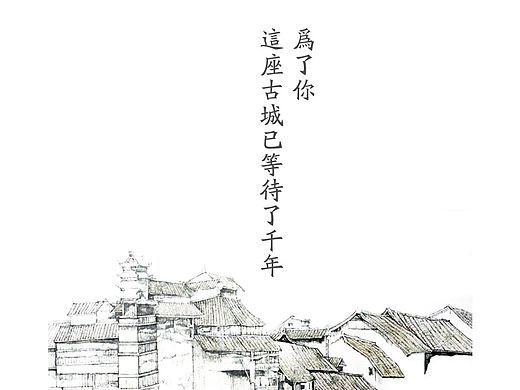 爲了你
這座古城已等待了千年